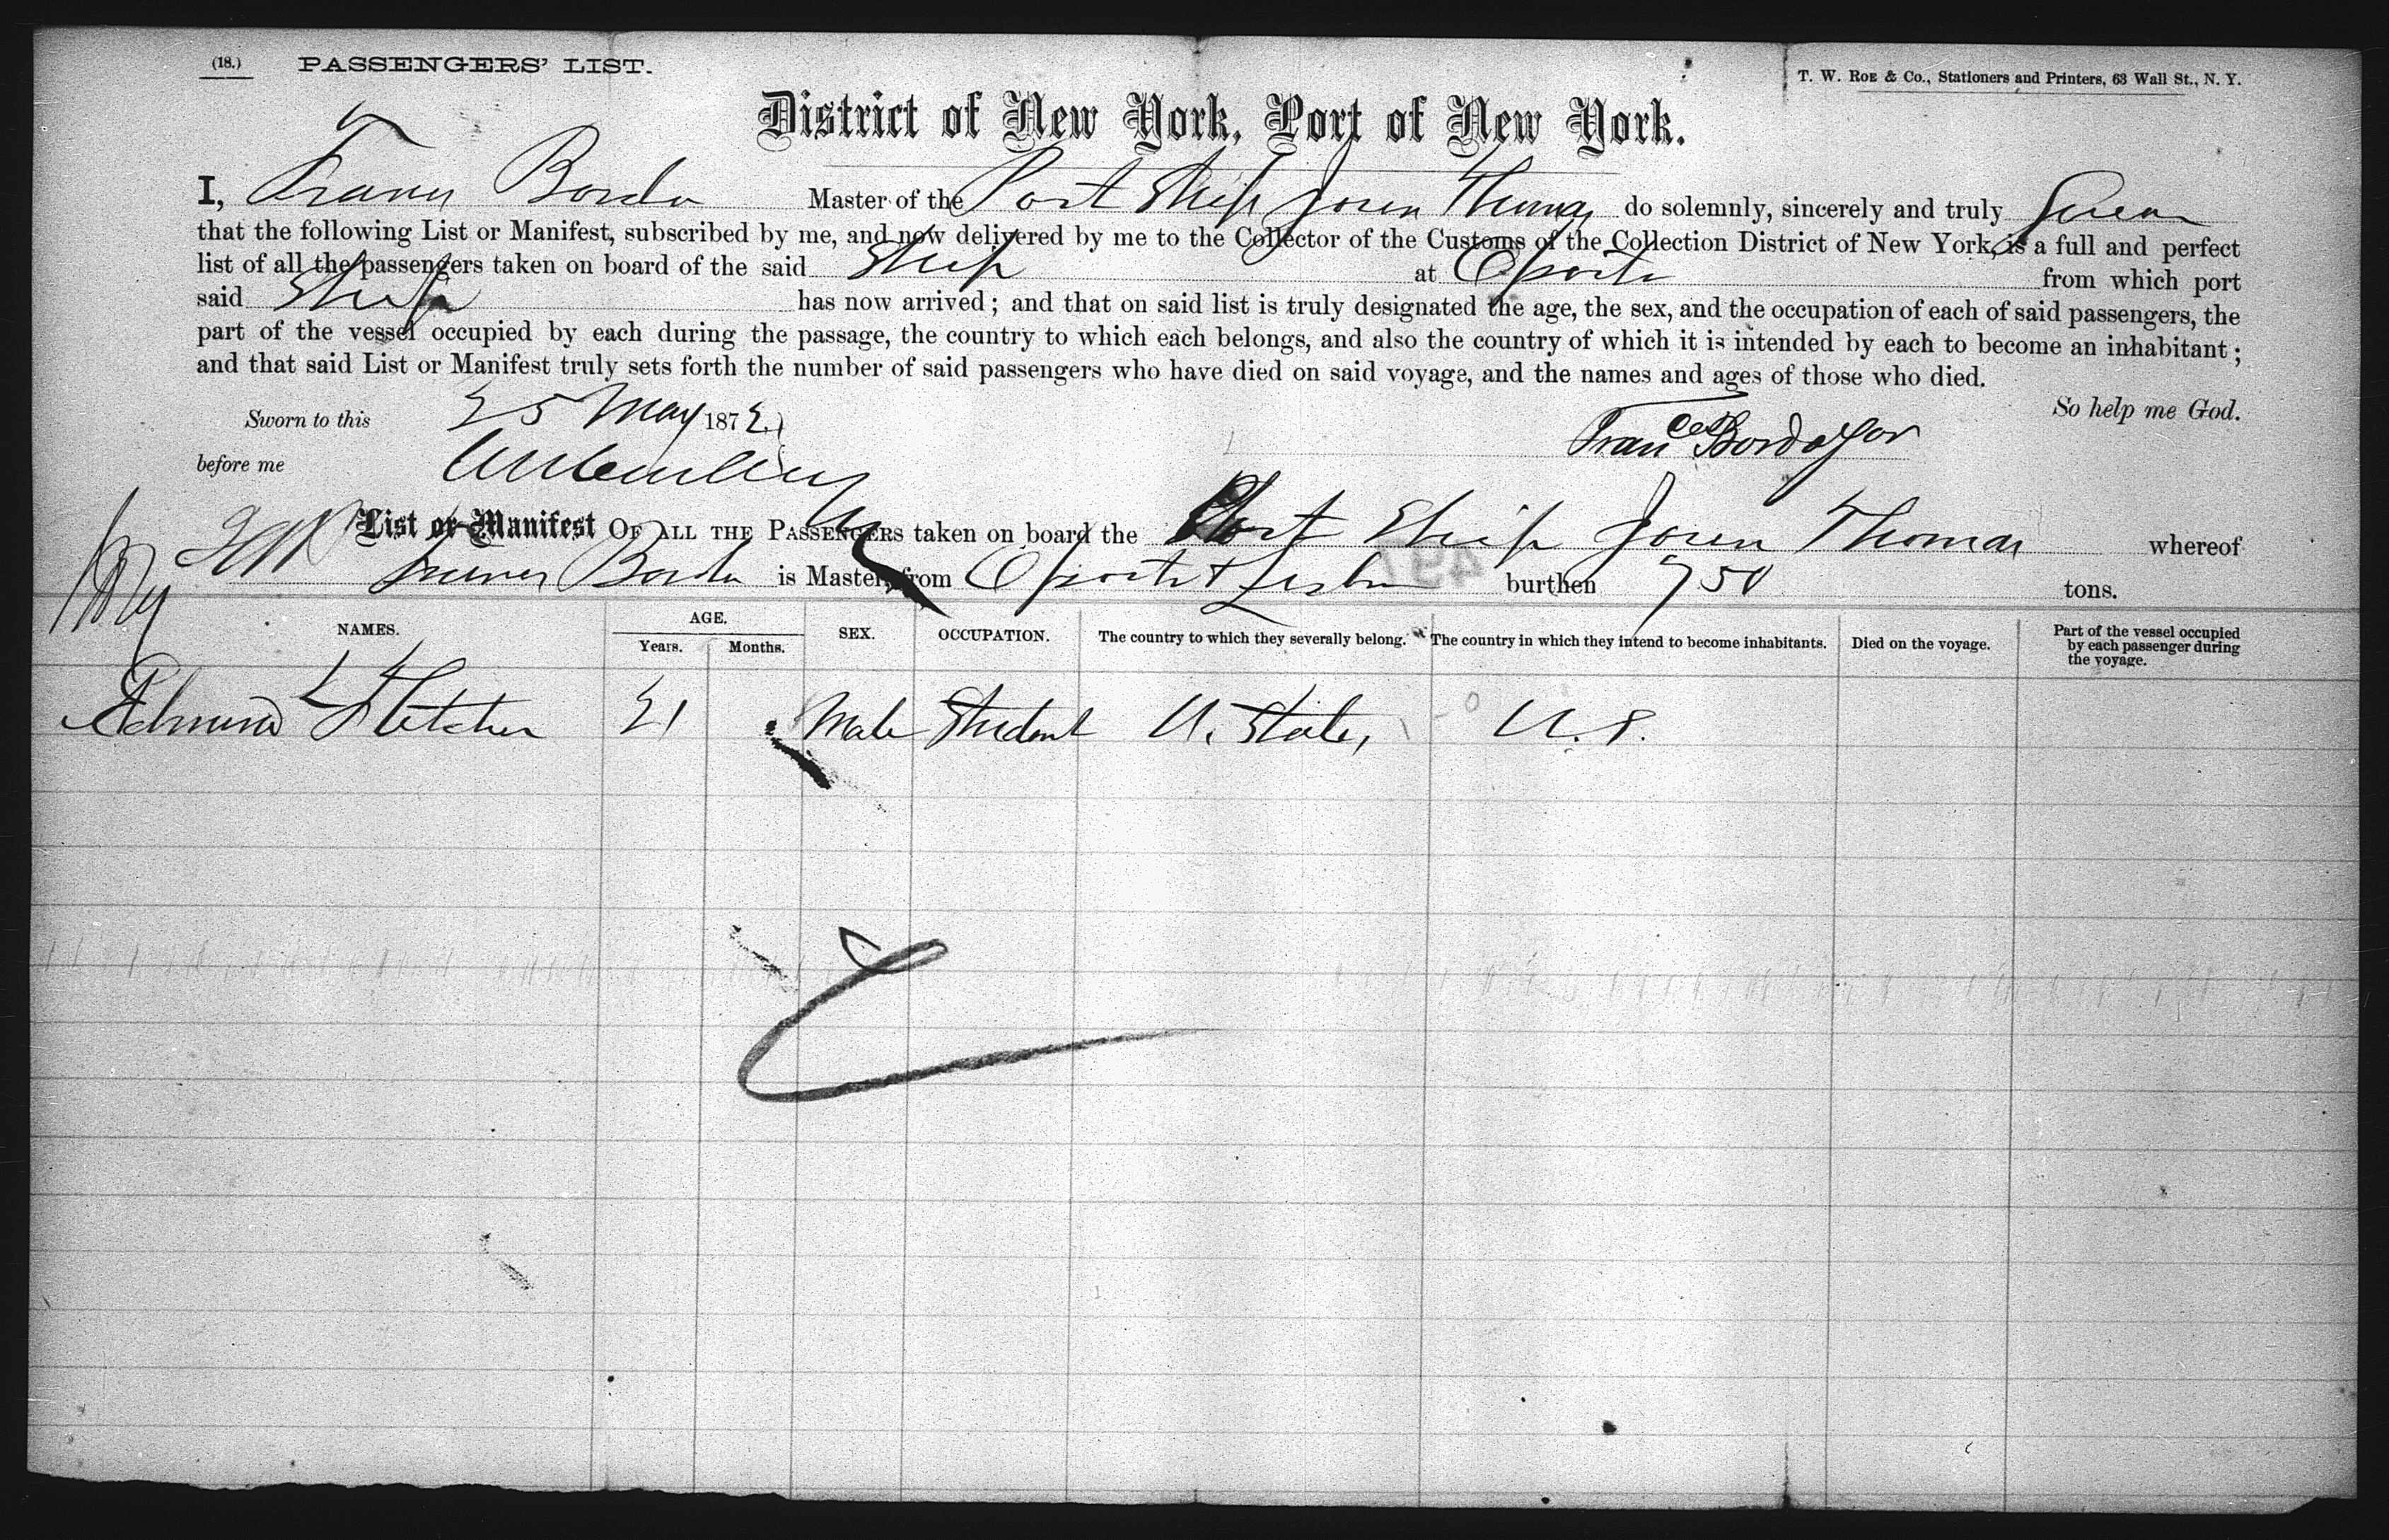 (18.) PASSENGERS' LIST. T. W. Roe & Co., Stationers and Printers, 63 Wall St., N. Y.
District of New York, Port of New York.
I, Borda Master of the Port Ship do solemnly, sincerely and truly Swear
that the following List or Manifest, subscribed by me, and now delivered by me to the Collector of the Customs of the Collection District of New York, is a full and perfect
list of all the passengers taken on board of the said Ship at Oporto from which port
said Ship has now arrived; and that on said list is truly designated the age, the sex, and the occupation of each of said passengers, the
part of the vessel occupied by each during the passage, the country to which each belongs, and also the country of which it is intended by each to become an inhabitant;
and that said List or Manifest truly sets forth the number of said passengers who have died on said voyage, and the names and ages of those who died.
Sworn to this 25 May 1872 So help me God.
before me
List or Manifest OF ALL THE PASSENGERS taken on board the Port Ship Thomas whereof
Borda is Master, from Oporto & burthen 750 tons.
NAMES. AGE. SEX. OCCUPATION. The country to which they severally belong. The country in which they intend to become inhabitants. Died on the voyage. Part of the vessel occupied by each passenger during the voyage.
Years. Months.
Edmund Fletcher 21 Male Student U. States U.S.